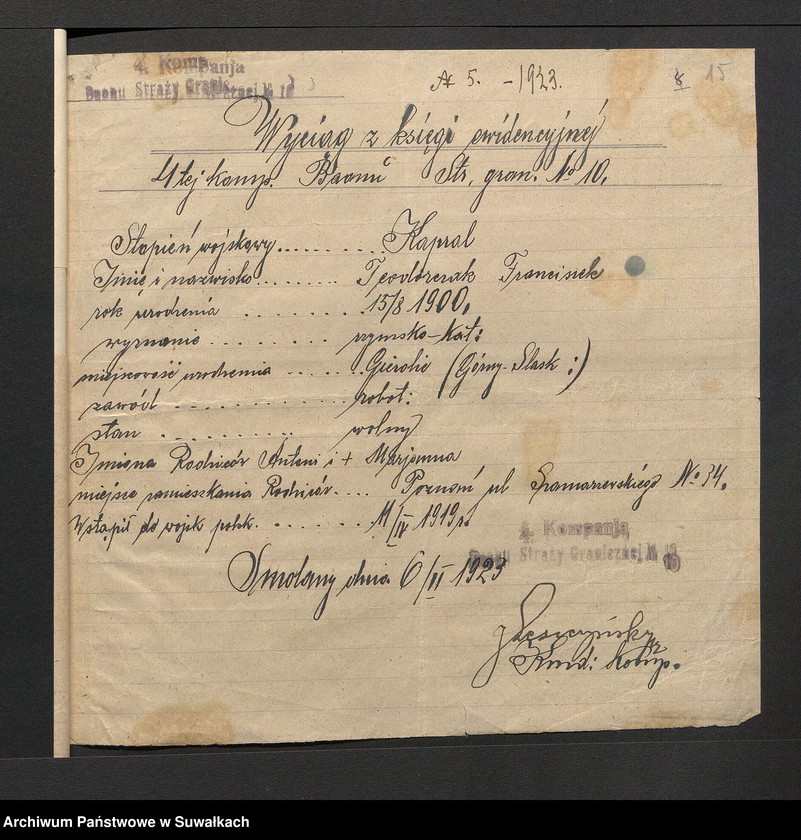 4. Kompanja
Baonu Straży Granicznej № 10
A 5. - 1923.
8 15
Wyciąg z księgi ewidencyjnej
4tej komp. Baonu Str. gran. № 10.
Stopień wojskowy ......... Kapral
Imię i nazwisko ......... Teodorczak Franciszek
rok urodzenia ......... 15/8 1900.
wyznanie ......... rzymsko-kat:
miejscowość urodzenia ...... (Górny-Slask :)
zawód ............ robot:
stan ........... wolny
Imiona Rodziców Antoni i + Marjanna
miejsce zamieszkania Rodziców.... Poznań ul Szamarzewskiego № 34.
Wstąpił do wojsk polsk. ....... 11/IV 1919 r.
4. Kompanja
Baonu Straży Granicznej № 10
Smolany dnia 6/II 1923
Leszczyński
Kmd: komp.
Archiwum Państwowe w Suwałkach